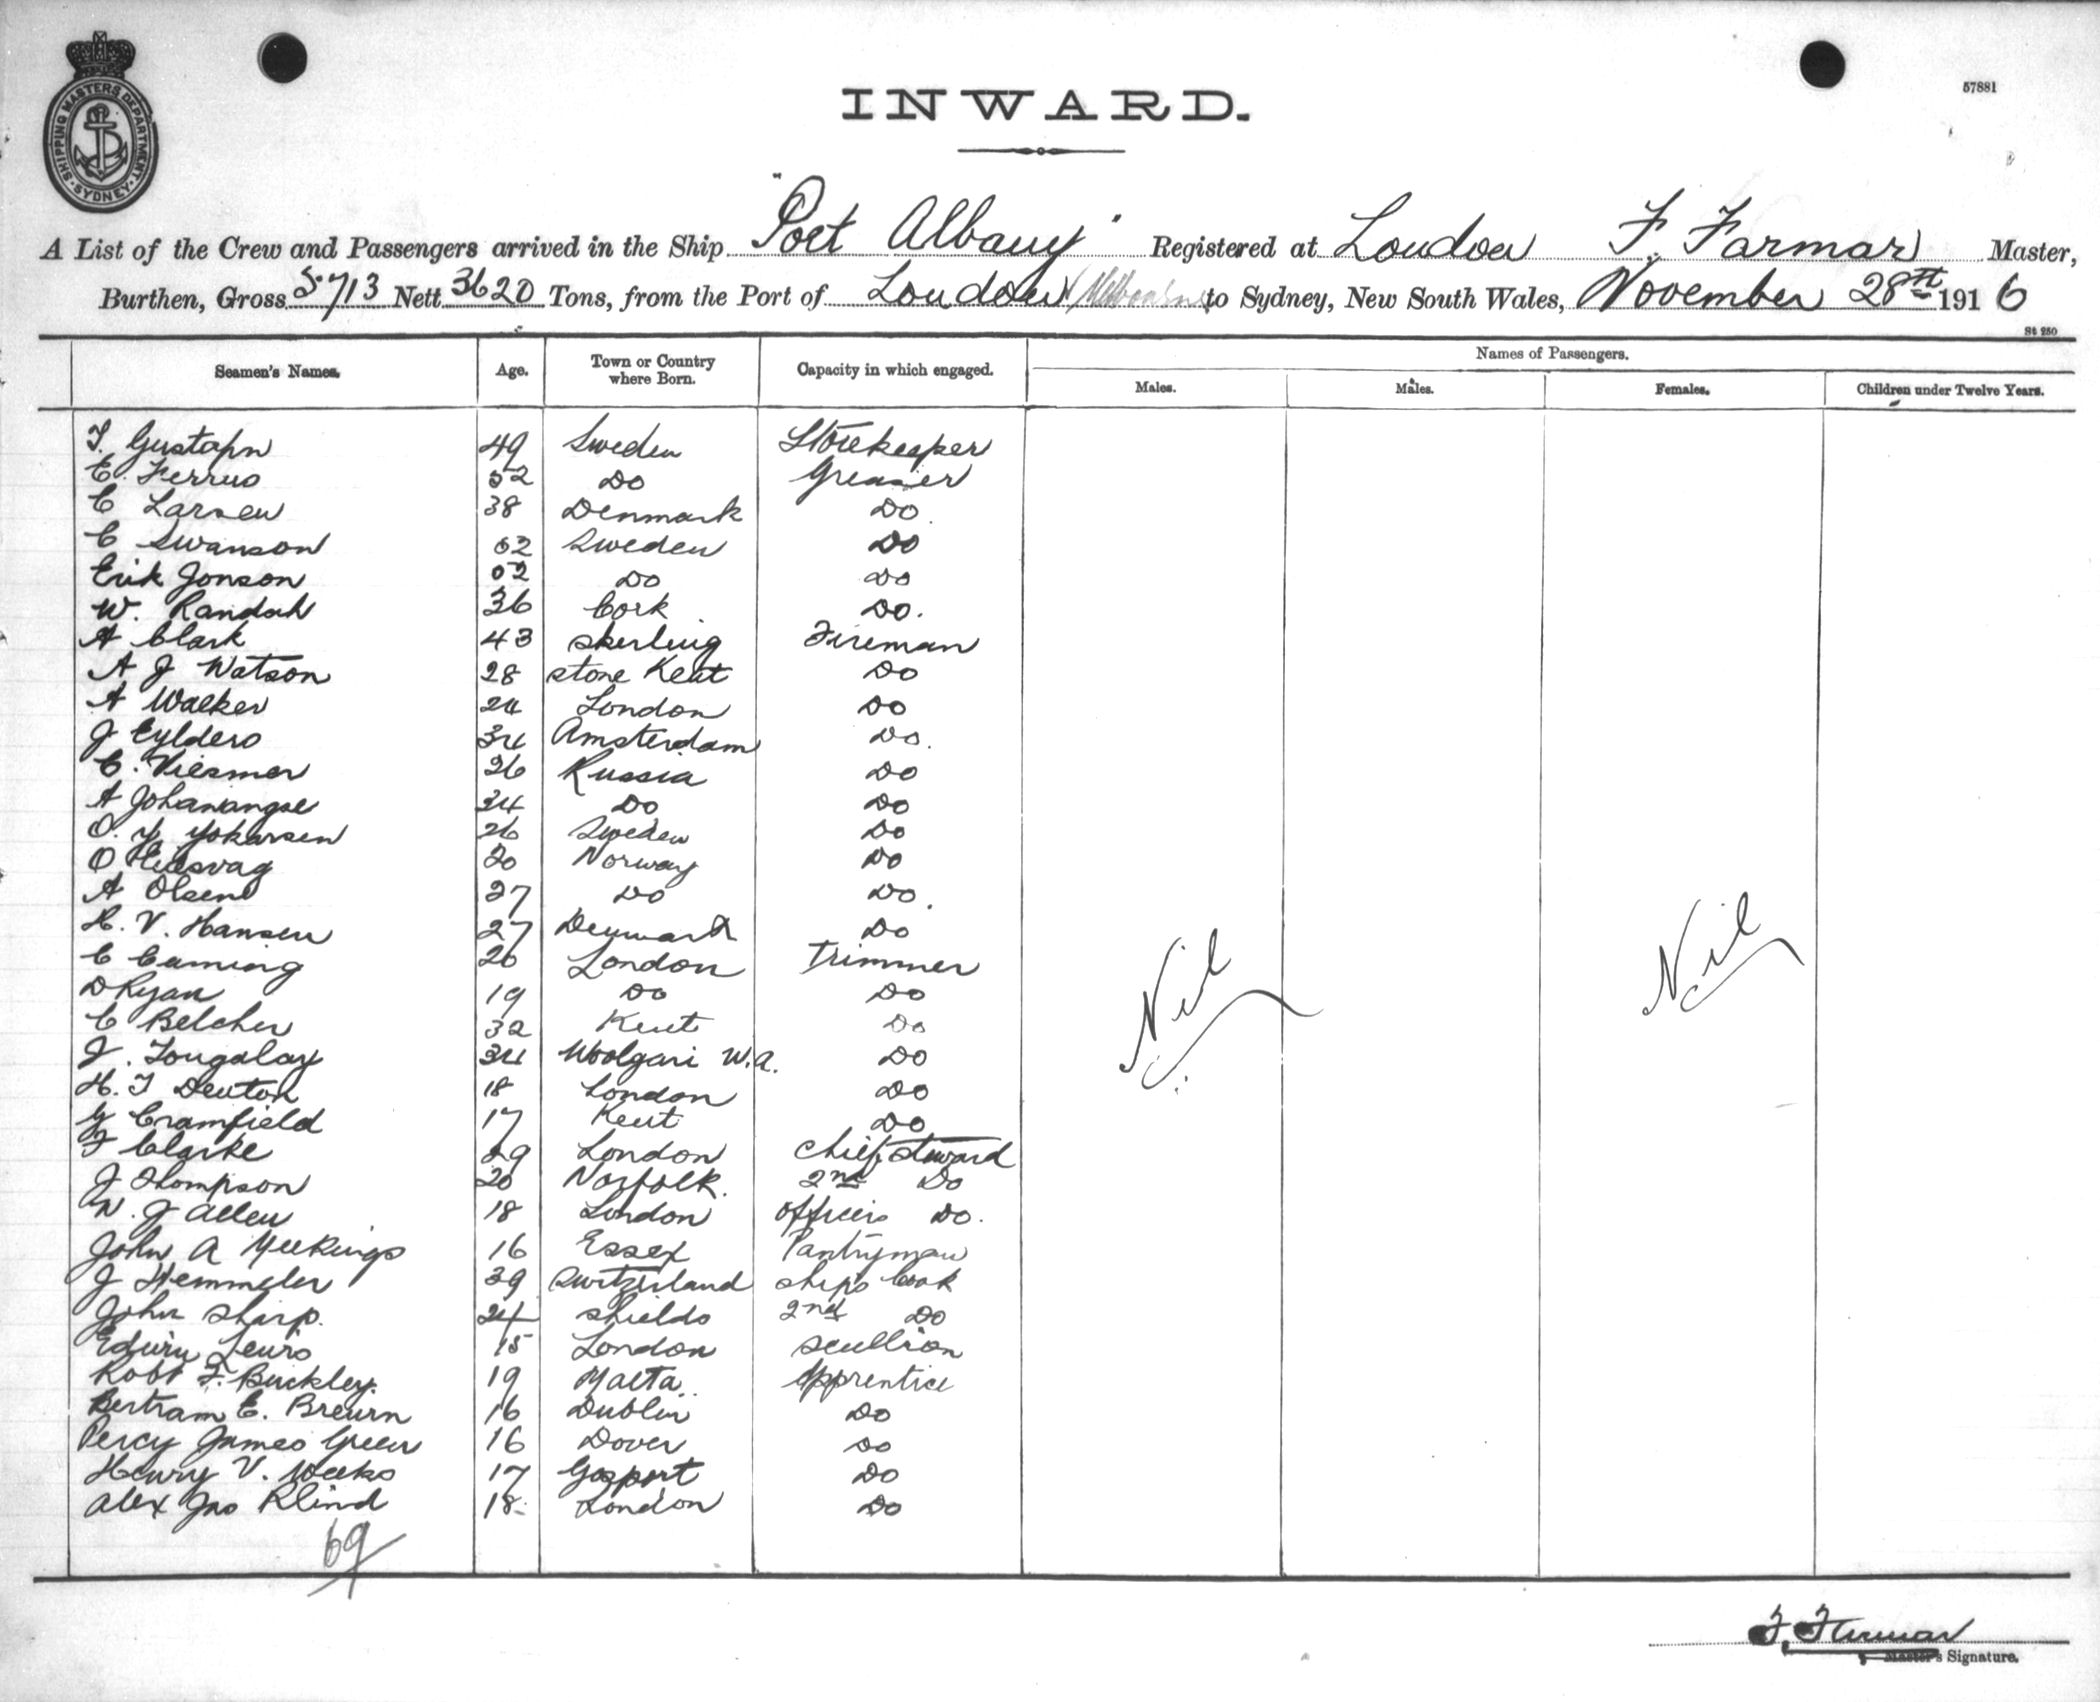 SHIPPING MASTERS DEPARTMENT
SYDNEY
57881
INWARD.
A List of the Crew and Passengers arrived in the Ship "Port Albany" Registered at London F. Farmar Master,
Burthen, Gross 5713 Nett 3620 Tons, from the Port of London / Melbourne to Sydney, New South Wales, November 28th 1916
St 250
Seamen's Names. Age. Town or Country where Born. Capacity in which engaged. Names of Passengers.
Males. Males. Females. Children under Twelve Years.
Gustafn 49 Sweden Storekeeper
E. Ferrus 52 Do Greaser
C Larsen 38 Denmark Do.
C Swanson 52 Sweden Do
Erik Jonson 52 Do Do
W. Randah 36 Cork Do.
A Clark 43 Skerling Fireman
A J Watson 28 Stone Kent Do
A Walker 24 London Do
J Eylders 34 Amsterdam Do.
C. Viesmer 26 Russia Do
A Johanangse 34 Do Do
O. Y. Yokarsen 26 Sweden Do
O Eidsvag 20 Norway Do
A Olsen 27 Do Do.
H. V. Hansen 27 Denmark Do
C Cuming 26 London Trimmer
D Ryan 19 Do Do
C Belcher 32 Kent Do
J. Tougalay 34 Woolgari W.A. Do
H. T Denton 18 London Do
G Cramfield 17 Kent Do
F Clarke 29 London Chief Steward
J Thompson 20 Norfolk. 2nd Do
W. J Allen 18 London Officers Do.
John A Meekings 16 Essex Pantryman
J Hemmeler 39 Switzerland Ships Cook
John Sharp. 24 Shields 2nd Do
Edwin Lewis 15 London Scullion
Robt F. Buckley. 19 Malta. Apprentice
Bertram E. Breurn 16 Dublin Do
Percy James Green 16 Dover Do
Henry V. Weeks 17 Gosport Do
Alex Jas Rlind 18. London Do
Nil Nil
69
F. Farmar
Master's Signature.